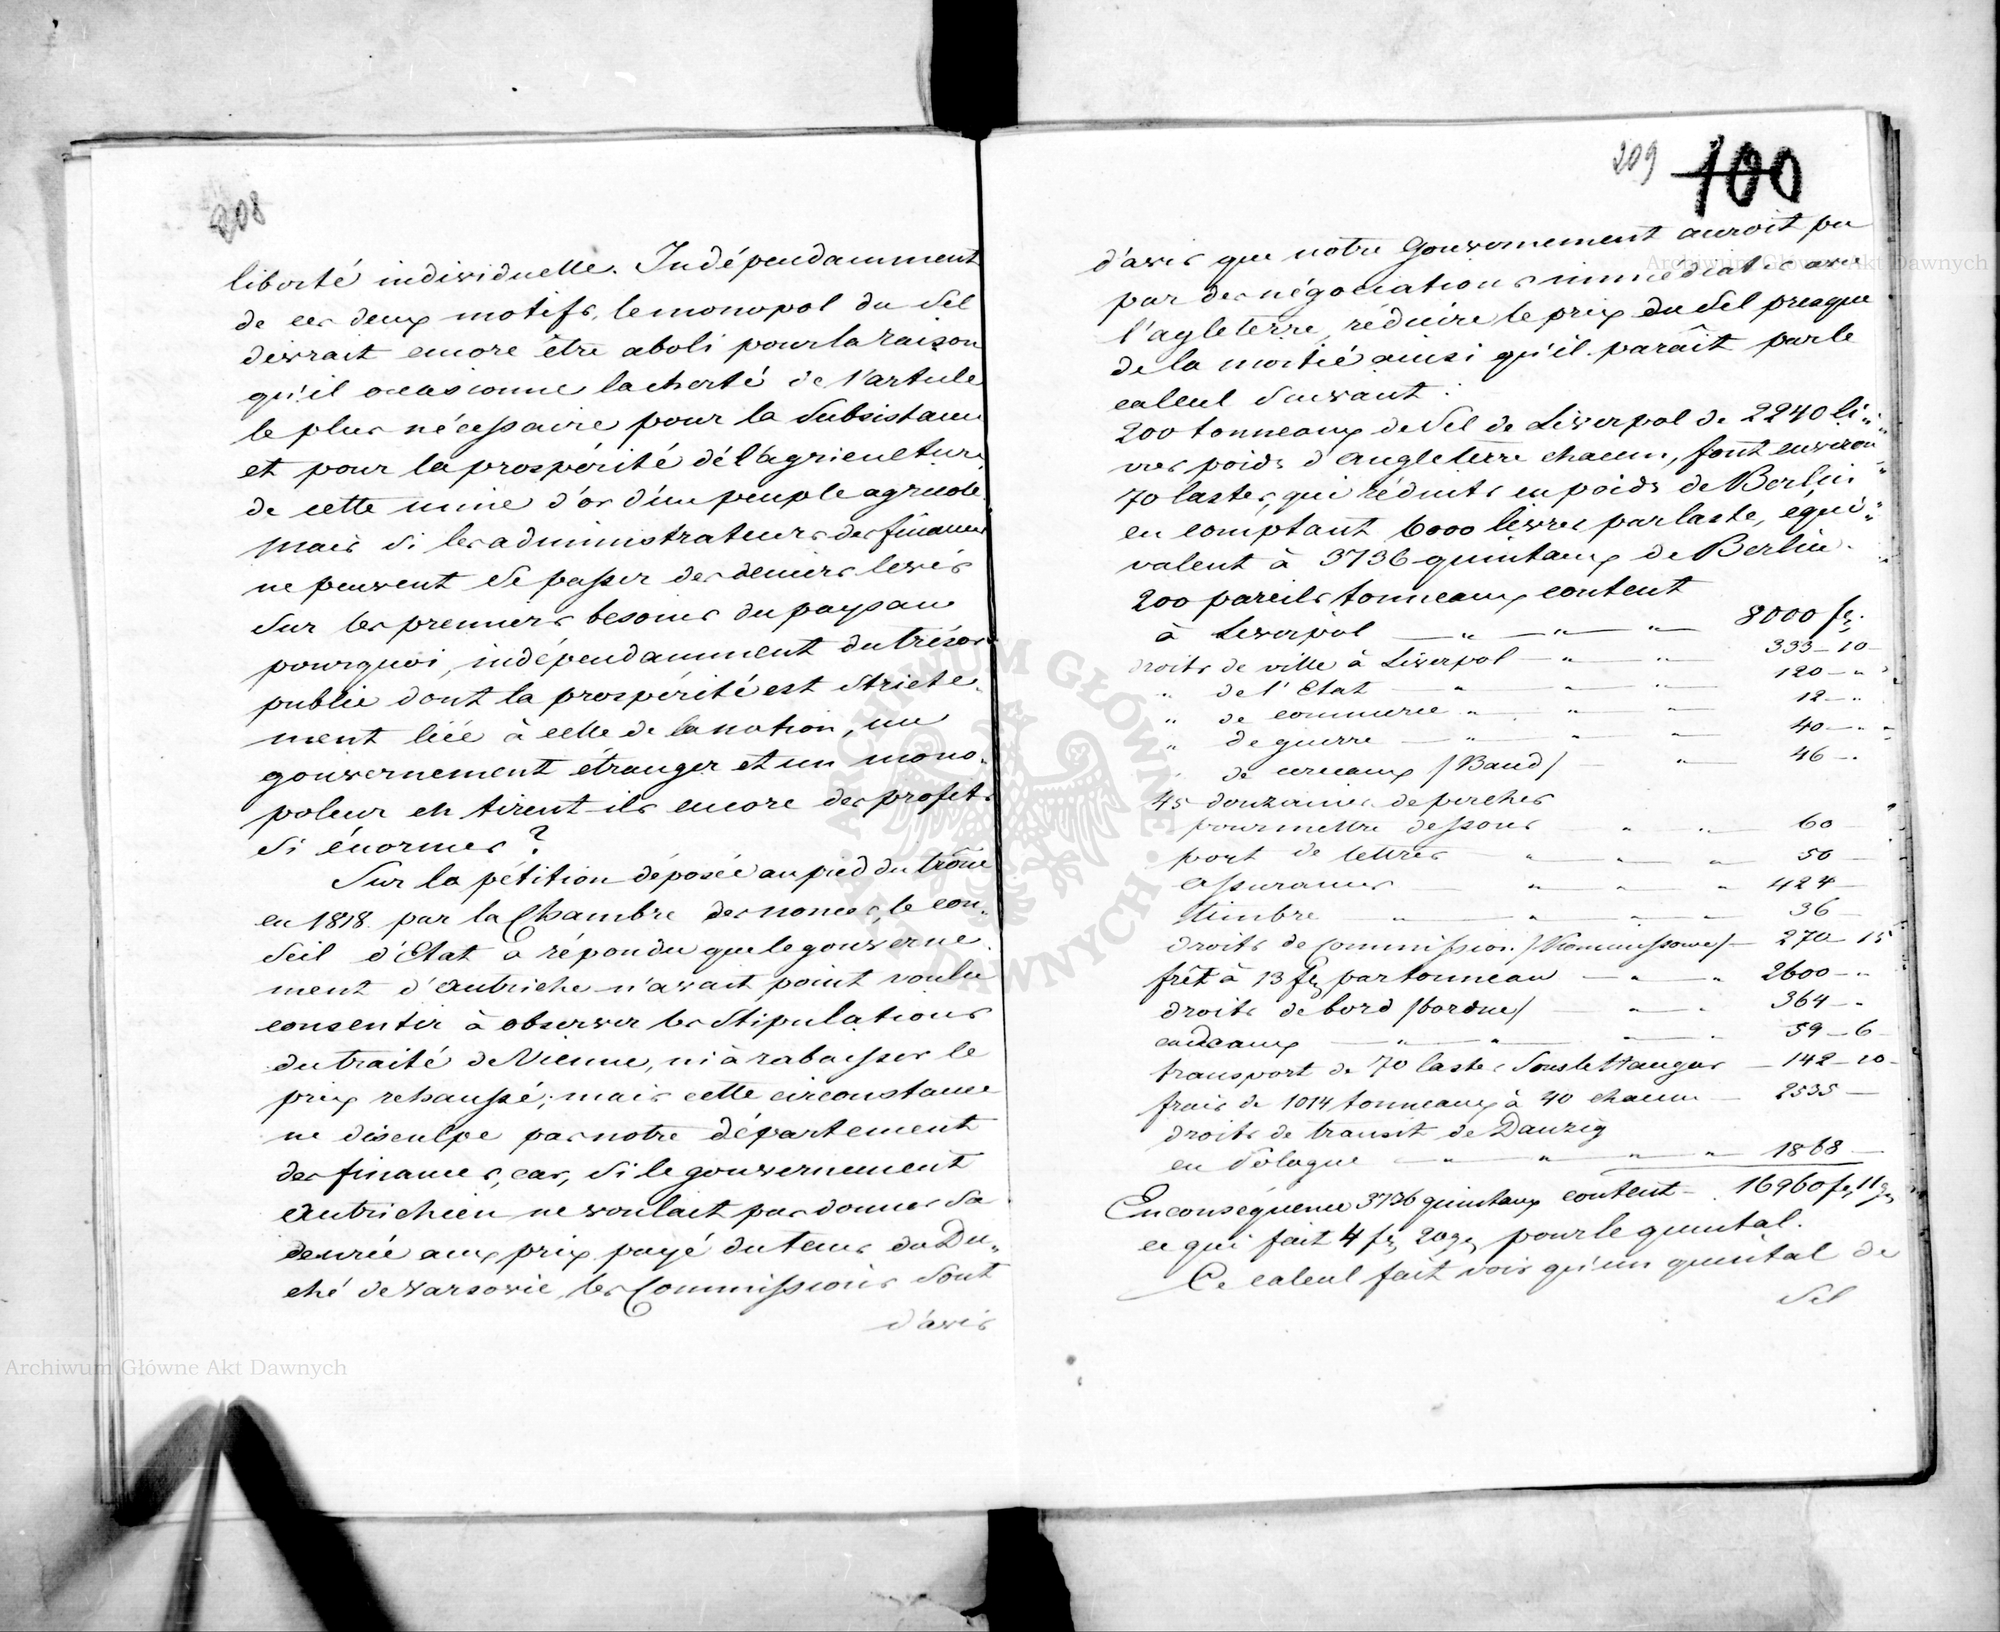 208
liberté individuelle. Indépendamment
de ces deux motifs, le monopol du sel
devrait encore être aboli pour la raison
qu'il occasionne la cherté de l'article
le plus nécessaire pour la subsistance
et pour la prospérité de l'agriculture,
de cette mine d'or d'un peuple agricole.
Mais si les administrateurs des finances
ne peuvent se passer des deniers levés
sur les premiers besoins du paysan
pourquoi, indépendamment du trésor
public dont la prospérité est stricte-
ment liée à celle de la nation, un
gouvernement étranger et un mono-
poleur en tirent-ils encore des profits
si énormes ?
Sur la pétition déposée au pied du trône
en 1818 par la Chambre des nonces, le con-
seil d'Etat a répondu que le gouverne-
ment d'Autriche n'avait point voulu
consentir à observer les stipulations
du traité de Vienne, ni à rabaisser le
prix rehaussé; mais cette circonstance
ne disculpe pas notre département
des finances, car, si le gouvernement
Autrichien ne voulait pas donner sa
denrée aux prix payé du tems du Du-
ché de Varsovie, les Commissions sont
d'avis
209 100
d'avis que notre Gouvernement auroit pu
par des négociations immédiates avec
l'agleterre, réduire le prix du sel presque
de la moitié ainsi qu'il paraît par le
calcul suivant :
200 tonneaux de sel de Liverpol de 2240 li-
vres poids d'Angleterre chacun, font environ
70 lastes, qui réduits en poids de Berlin
en comptant 6000 livres par laste, équi-
valent à 3736 quintaux de Berlin.
200 pareils tonneaux coutent
à Liverpol — " — " — " — 8000 fl.
droits de ville à Liverpol — " — " — 333 — 10
" de l'Etat — " — " — 120 — "
" de commerce " — " — 12 — "
" de guerre — " — " — 40 — "
" de cerceaux /Band/ — " — 46 — "
45 douzaines de perches
pour mettre dessous — " — " — 60
port de lettres — " — " — 50 —
Assurances — " — " — " 424 —
timbre " — " — " — 36 —
droits de Commission / / — 270 — 15
frêt à 13 fl par tonneau — " — " 2600 — "
droits de bord /bordue/ — " — 364 — "
cadeaux — " — " — " 59 — 6
transport de 70 lastes sous le Hangar — 142 — 10
frais de 1014 tonneaux à 40 chacun — 2535 —
droits de transit de Danzig
en Pologne — " — " — " 1868 —
En conséquence 3736 quintaux coutent — 16960 fl, 11 g,
ce qui fait 4 fl, 20 g, pour le quintal.
Ce calcul fait voir qu'un quintal de
sel
Archiwum Główne Akt Dawnych
Archiwum Główne Akt Dawnych
ARCHIWUM GŁÓWNE · AKT DAWNYCH ·